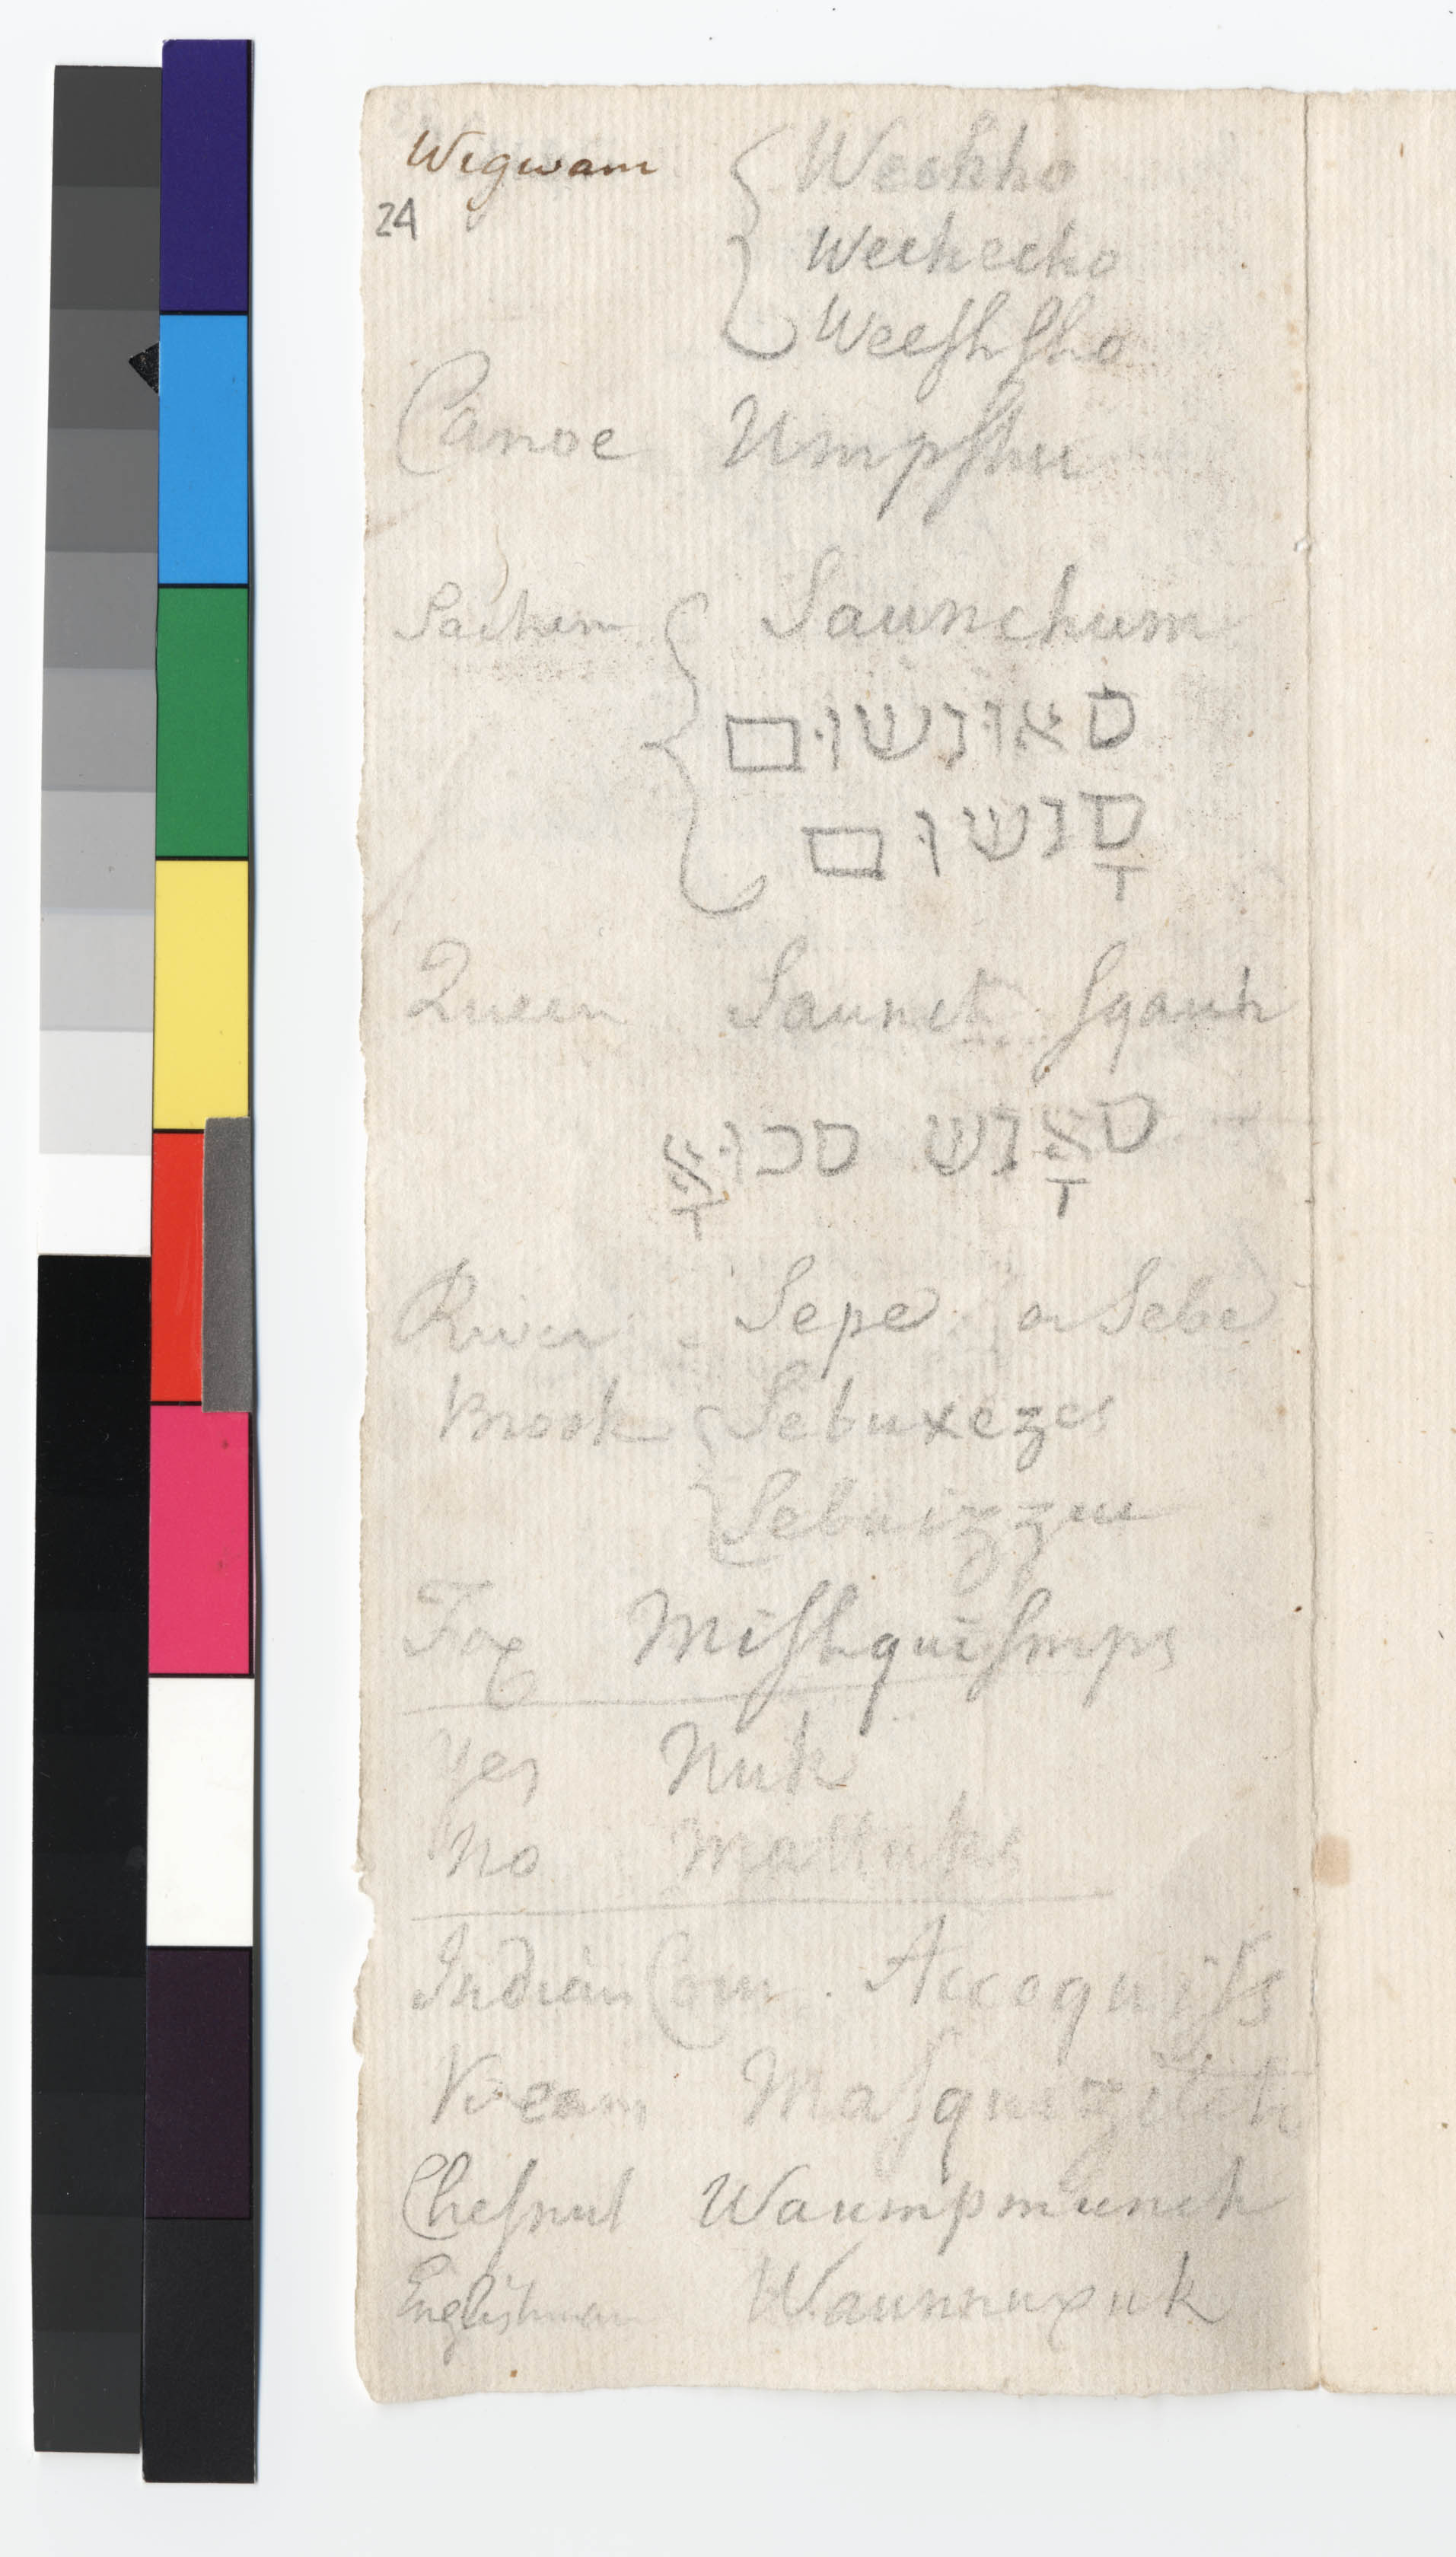 Wigwam { Weehho
24
Weecheecho
Weeshsho
Canoe Umpshu
Sachem { Saunchum
סאונשום
סָנשום
Queen Saunch Sqauh
סאָנש סכואָ
River Sepe or Sebe
Brook { Sebuxezes
Sebuizzue
Fox Mishquishmps
Yes Nuk
No Mattuks
Indian Corn. Accoquiss
Chesnut Waumpmunch
Englishman Waunnuxuk